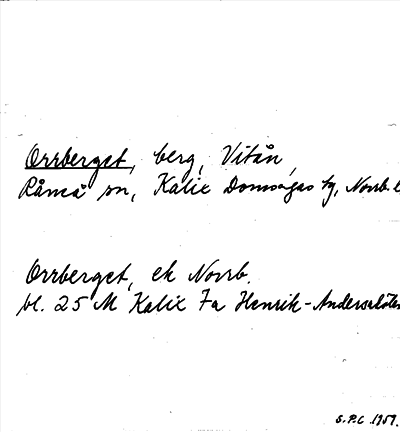 Orrberget, berg, Vitån,
Råneå sn, Kalix Domsagas tg, Norrb. l
Orrberget, ek Norrb.
bl. 25 M Kalix Fa Henrik-Anderselåten
S.P.C 1959.